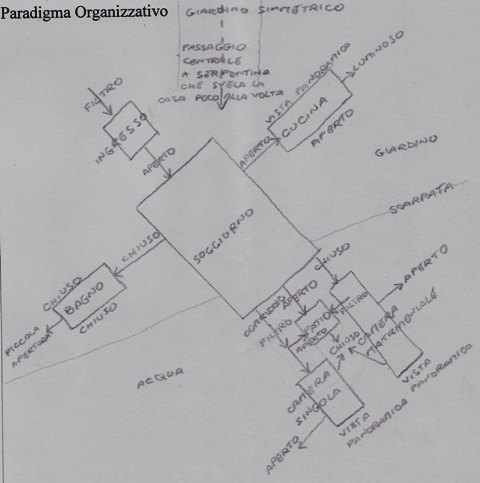 Paradigma Organizzativo
GIARDINO SIMMETRICO
PASSAGGIO
CENTRALE
A SERPENTINA
CHE SVELA LA
CASA POCO ALLA VOLTA
FILTRO
INGRESSO
APERTO
VISTA PANORAMICA
LUMINOSO
CUCINA
APERTO
APERTO
GIARDINO
SCARPATA
SOGGIORNO
CHIUSO
CHIUSO
BAGNO
CHIUSO
PICCOLA
APERTURA
ACQUA
CHIUSO
CORRIDOIO
FILTRO
APERTO
PATIO
APERTO
FILTRO
CHIUSO
CAMERA
MATRIMONIALE
APERTO
VISTA
PANORAMICA
CAMERA
SINGOLA
VISTA
PANORAMICA
APERTO